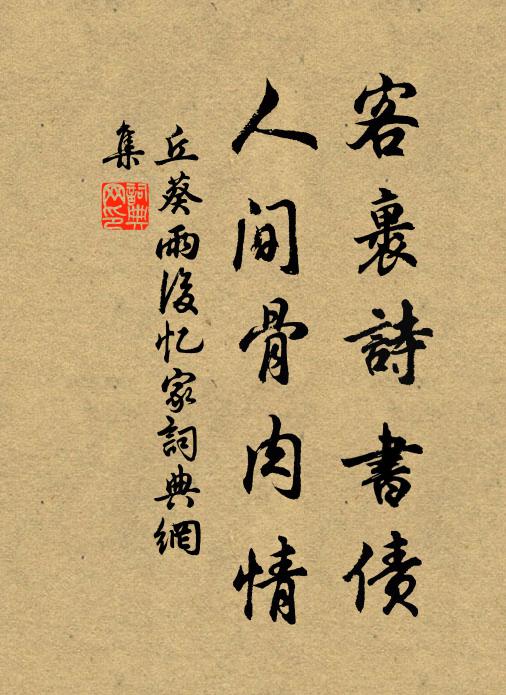 客裏詩書債
人間骨肉情
丘葵雨後忆家詞典網
集
詞典网印